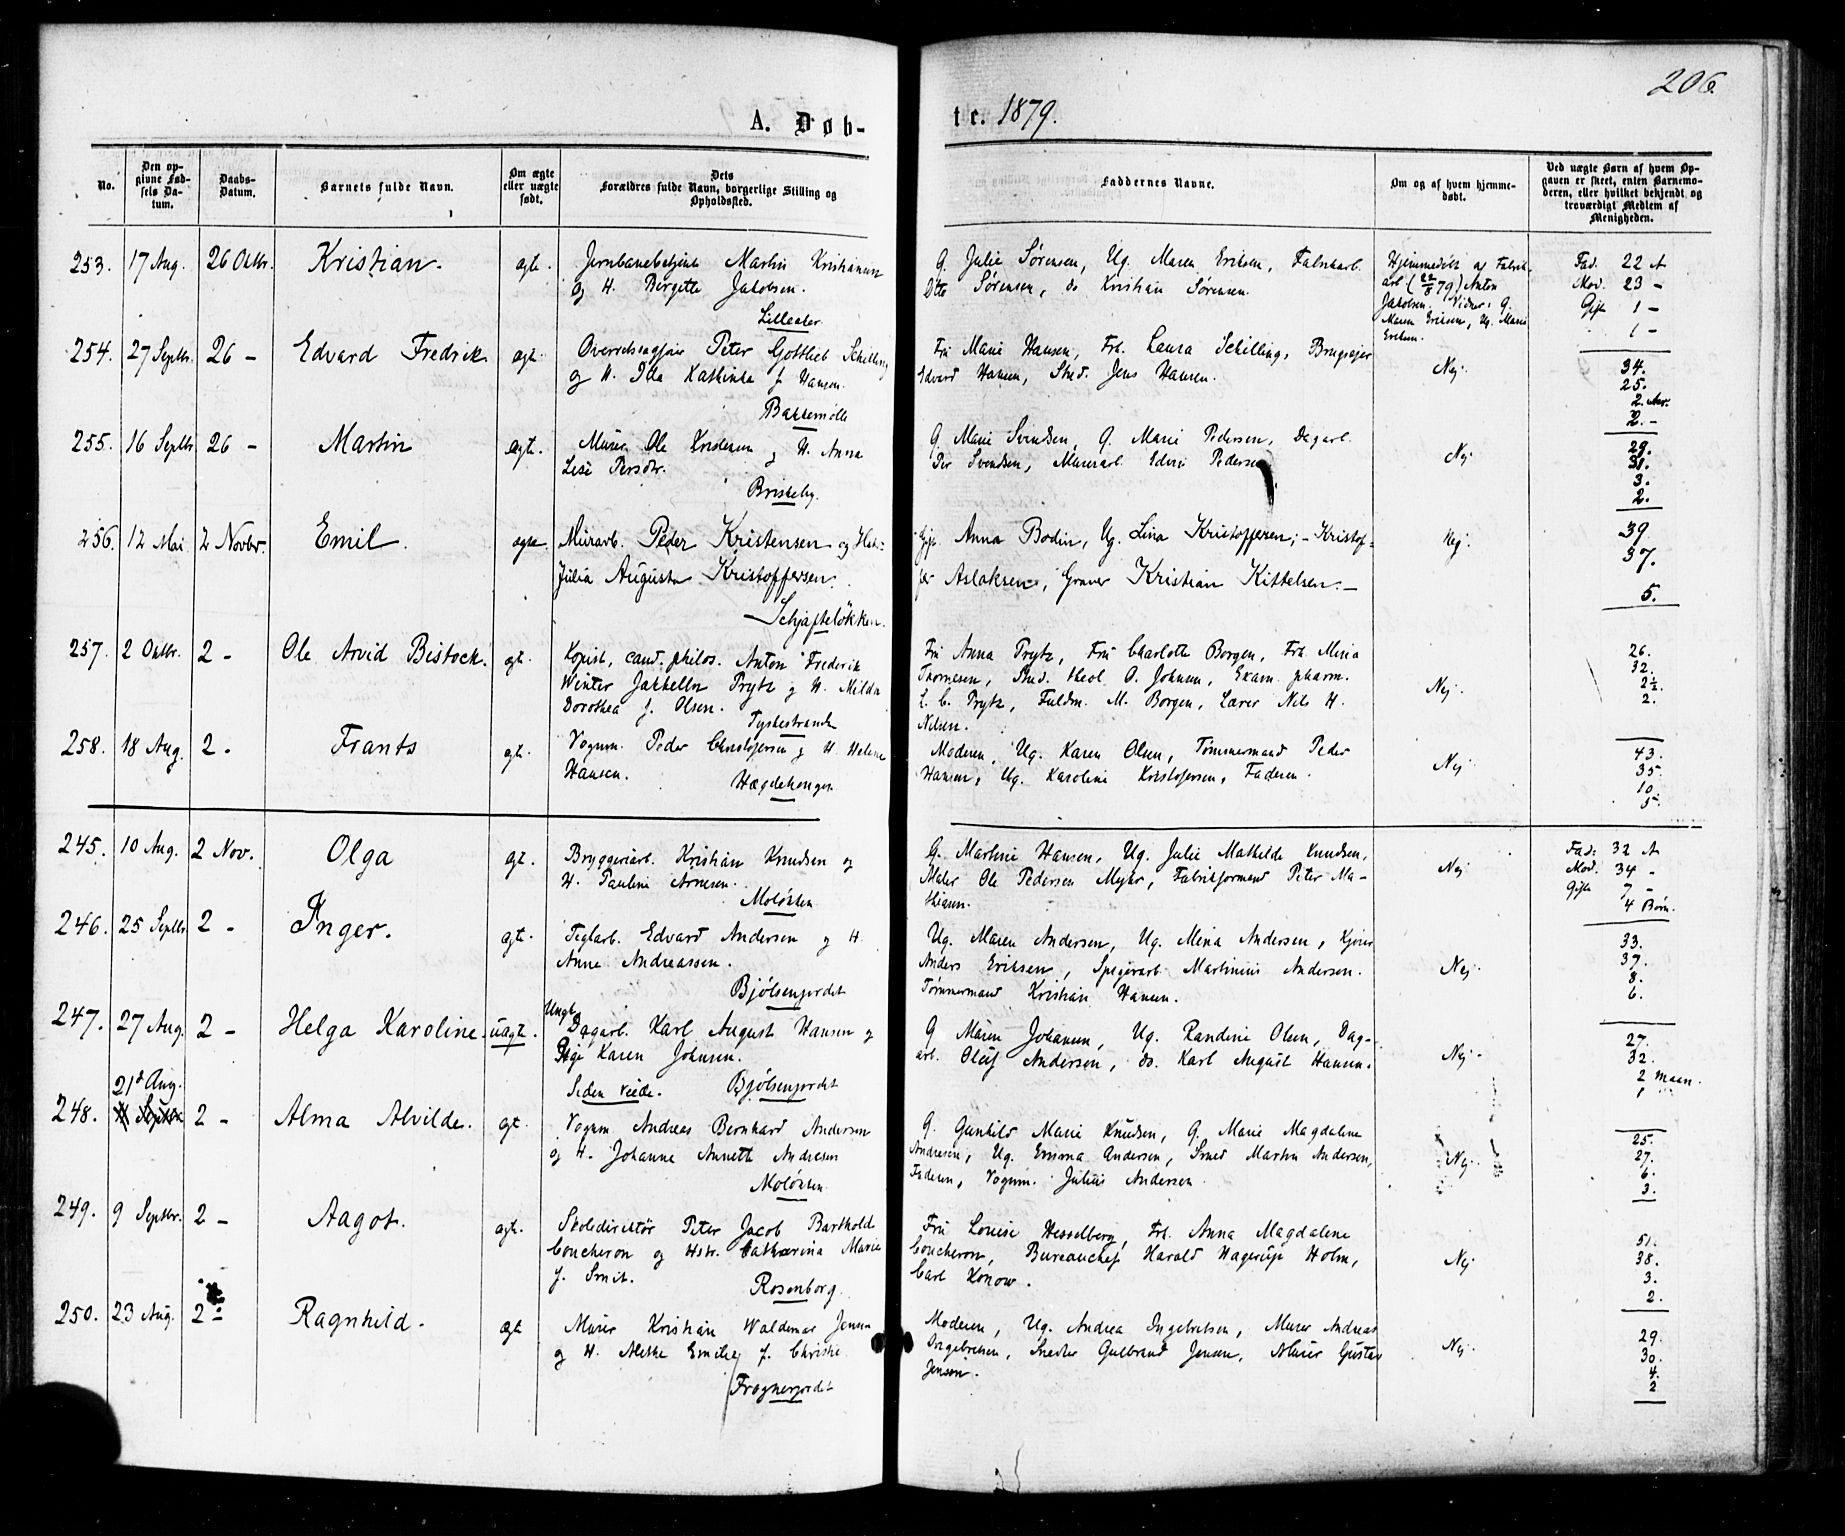 206.
A. Døb-
te. 1879.
No.
Den op-
givne Fød-
sels Da-
tum.
Daabs-
Datum.
Barnets fulde Navn.
Om ægte
eller uægte
født.
Dets
Forældres fulde Navn, borgerlige Stilling og
Opholdssted.
Faddernes Navne.
Om og af hvem hjemme-
døbt.
Ved uægte Børn af hvem Op-
gaven er skeet, enten Barnemo-
deren, eller hvilket bekjendt og
troværdigt Medlem af
Menigheden.
253. 17 Aug. 26 Oktbr. Kristian. ægte. Jernbanebetjent Martin Kristiansen
og H. Birgitte Jakobsen.
Lilleaker
G. Julie Sørensen, Ug. Maren Eriksen, Fabrikarb.
Otto Sørensen, do Kristian Sørensen.
Hjemmedøbt af Fabrik-
arb (22/8 79) Anton
Jakobsen. Vidner: G.
Maren Eriksen, Ug. Marie
Eriksen.
Fad. 22 A
Mod. 23 -
Gift 1 -
1 -
254. 27 Septbr. 26 - Edvard Fredrik ægt. Overretssagfører Peter Gottlieb Schilling
og H. Ida Kathinka f. Hansen.
Bakkemølle
Fru Marie Hansen, Frk. Laura Schilling, Brugseier
Edvard Hansen, Stud. Jens Hansen.
Nej.
34.
25.
2.
2. -
255. 16 Septbr 26 - Martin ægt. Murer Ole Kristensen og H. Anna
Lise Persdtr.
Briskeby.
G. Marie Svendsen, G. Marie Pedersen, Dagarb.
Per Svendsen, Murerarb. Pedersen
Nej
29.
31.
3.
2.
256. 12 Mai 2 Novbr. Emil. ægte. Murarb. Peder Kristensen og
Julia Augusta Kristoffersen.
Schjafteløkken.
Anna Bodin, Ug. Lina Kristoffersen; - Kristof-
fer Aslaksen, Graver Kristian Kittelsen. -
Nej.
39.
37.
5.
257. 2 Oktbr. 2 - Ole Arvid Bistock. ægt. Kopist, cand. philos. Anton Frederik
Winter Jakhelln Prytz og H. Milda
Dorothea f. Olsen.
Tyskestranda
Fru Anna Prytz, Fru Charlotte Borgen, Frk. Mina
Thoresen, Stud. theol. O. Johnsen, Exam. pharm.
L. C. Prytz, Fuldm. M. Borgen, Lærer Nils H.
Nilsen.
Nej.
26.
32.
2½.
2.
258. 18 Aug. 2. Frants ægt. Vognm. Peder Christofersen og H. Helene
Hansen.
Hægdehougen
Moderen, Ug. Karen Olsen, Tømmermand Peder
Hansen, Ug. Karoline Kristofersen, Faderen.
Nej
43.
35.
10.
5.
245. 10 Aug. 2 Nov. Olga ægt. Bryggeriarb. Kristian Knudsen og
H. Pauline Arnesen.
Moløkken
G. Martine Hansen, Ug. Julie Mathilde Knudsen,
Maler Ole Pedersen Myhr, Fabrikformand Peter Ma-
thisen.
Nej
Fad: 32 A
Mod. 34 -
Gifte 7 -
4 Børn.
246. 25 Septbr 2 - Inger. ægt. Teglarb. Edvard Andersen og H.
Anne Andreassen.
Bjølsenjordet
Ug. Maren Andersen, Ug. Mina Andersen, Kjører
Anders Eriksen, Spigerarb. Martinius Andersen.
Tømmermand Kristian Hansen.
Nej
33.
37.
8.
6.
247. 27 Aug. 2 - Helga Karoline. uægt. Ungk.
Dagarb. Karl August Hansen og
Pige Karen Johnsen.
Siden viede. Bjølsenjordet
G Maren Johansen, Ug. Randine Olsen, Dag-
arb. Oluf Andersen, do. Karl August Hansen.
Nej.
27.
32.
2 Maan.
1
248. 21de Aug. 2 - Alma Alvilde. ægt. Vognm. Andreas Bernhard Andersen
og H. Johanne Annette Andresen
Moløkken
G. Gunhild Marie Knudsen, G. Marie Magdalene
Andresen, Ug. Emma Andersen, Smed Martin Andersen,
Faderen, Vognm. Julius Andersen.
Nej.
25.
27.
6.
3.
249. 9 Septbr. 2 - Aagot. ægt. Skoledirektør Peter Jacob Barthold
Coucheron og Hstr. Catharina Marie
f. Smit.
Rosenborg.
Fru Louise Hesselberg, Frk. Anna Magdalene
Coucheron, Bureauchef Harald Hagerup Holm,
Carl Konow.
Nej
51.
38.
3.
2.
250. 23 Aug. 2 - Ragnhild. ægt Murer Kristian Waldemar Jensen
og H. Emilie f. Christie.
Frognerjordet
Moderen, Ug. Andrea Ingebretsen, Murer Andreas
Ingebretsen, Snedker Gulbrand Jensen, Murer Gustav
Jensen.
Nej.
29.
30.
4.
2